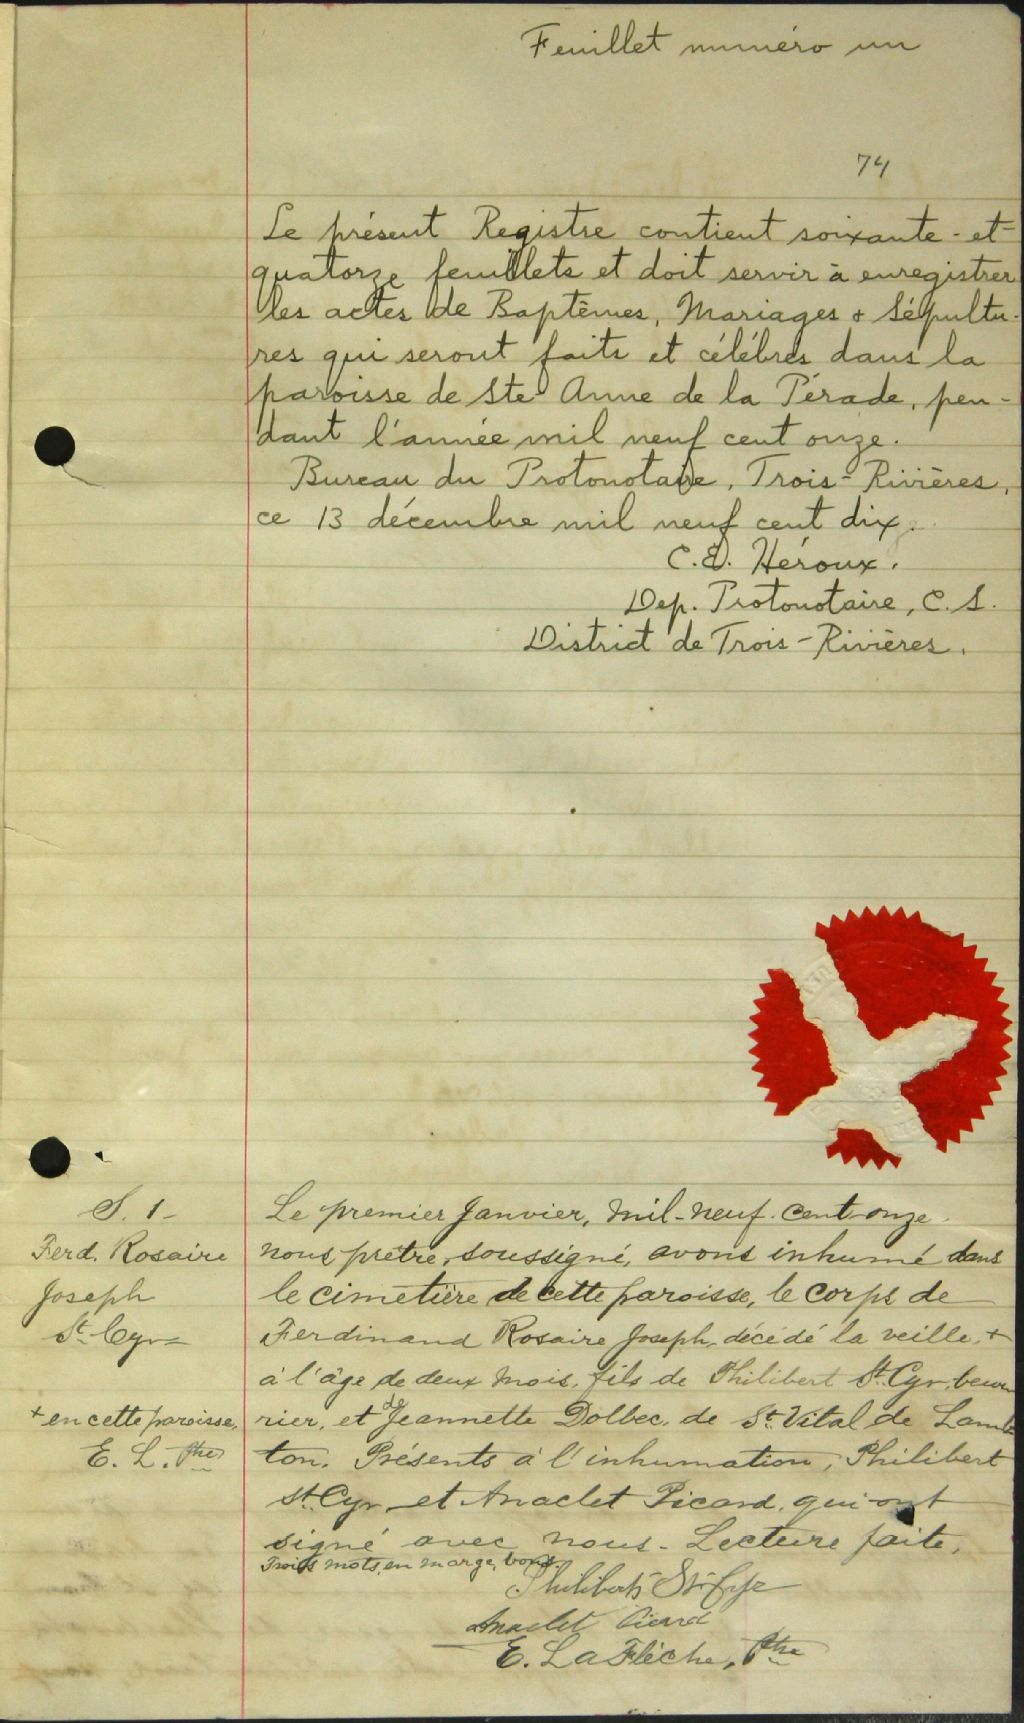 Feuillet numéro un
74
Le présent Registre contient soixante-et-
quatorze feuillets et doit servir à enregistrer
les actes de Baptêmes, Mariages & Sépultu-
res qui seront faits et célébrés dans la
paroisse de Ste Anne de la Pérade, pen-
dant l'année mil neuf cent onze.
Bureau du Protonotaire, Trois-Rivières,
ce 13 décembre mil neuf cent dix.
C.D. Héroux.
Dep. Protonotaire, C.S.
District de Trois-Rivières.
S. 1-
Ferd. Rosaire
Joseph
St. Cyr
+ en cette paroisse.
E. L. Ptre
Le premier Janvier, mil-neuf-cent-onze.
nous prêtre, soussigné, avons inhumé dans
le cimetière de cette paroisse, le corps de
Ferdinand Rosaire Joseph, décédé la veille, +
à l'âge de deux mois, fils de Philibert St. Cyr, beur-
rier, et de Jeannette Dolbec, de St. Vital de Lamb
ton. Présents à l'inhumation, Philibert
St. Cyr et Anaclet Picard, qui ont
signé avec nous. Lecture faite.
Trois mots, en marge, bons.
Philibert St-Cyr
Anaclet Picard
E. LaFlèche, Ptre